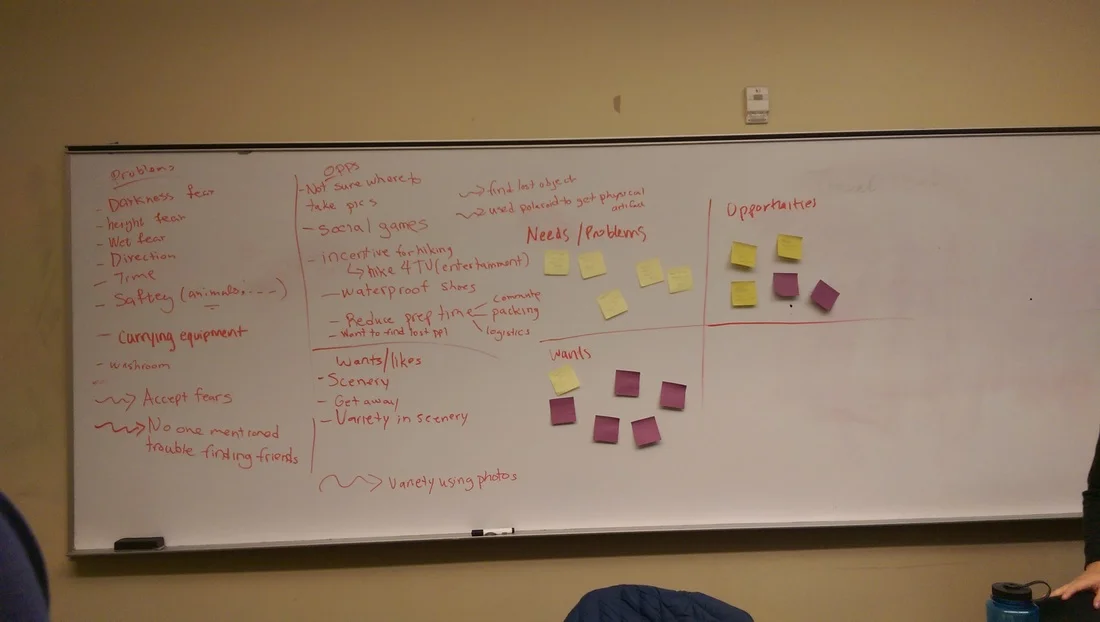 Problems
- Darkness fear
- height fear
- Wet fear
- Direction
- Time
- Saftey (animals, ----)
- carrying equipment
- washroom
Accept fears
No one mentioned
trouble finding friends
OPPS
- Not sure where to
take pics
- social games
- incentive for hiking
hike 4 TV (entertainment)
- waterproof shoes
- Reduce prep time
commute
packing
logistics
- want to find lost ppl
Wants/likes
- Scenery
- Get away
- Variety in scenery
Variety using photos
find lost object
used polaroid to get physical
artifact
Needs/Problems
Opportunities
Wants